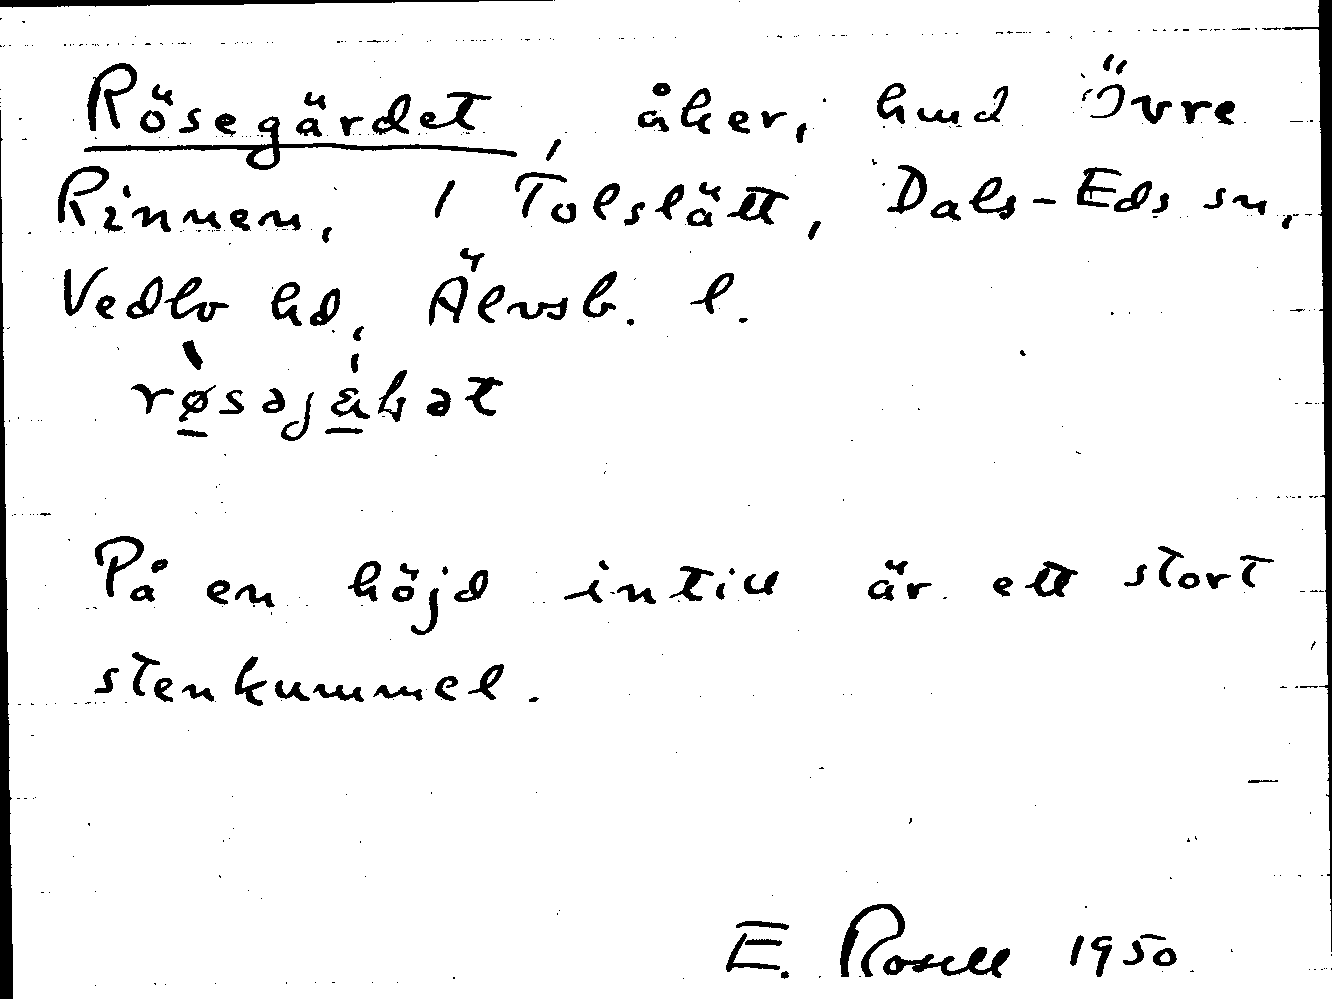 Rösegärdet, åker, hmd Övre
Rinnen, 1 Tolslätt, Dals-Eds sn,
Vedbo hd, Älvsb. l.
På en höjd intill är ett stort
stenkummel.
E. Rosell 1950